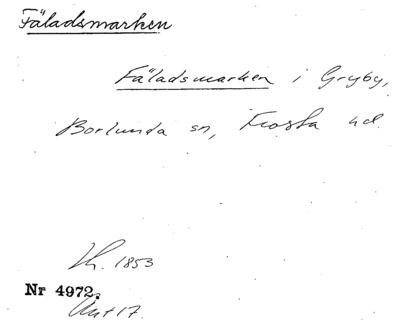 Fäladsmarken
Fäladsmarken i Gryby,
Borlunda sn, Frosta hd.
1853
Nr 4972.